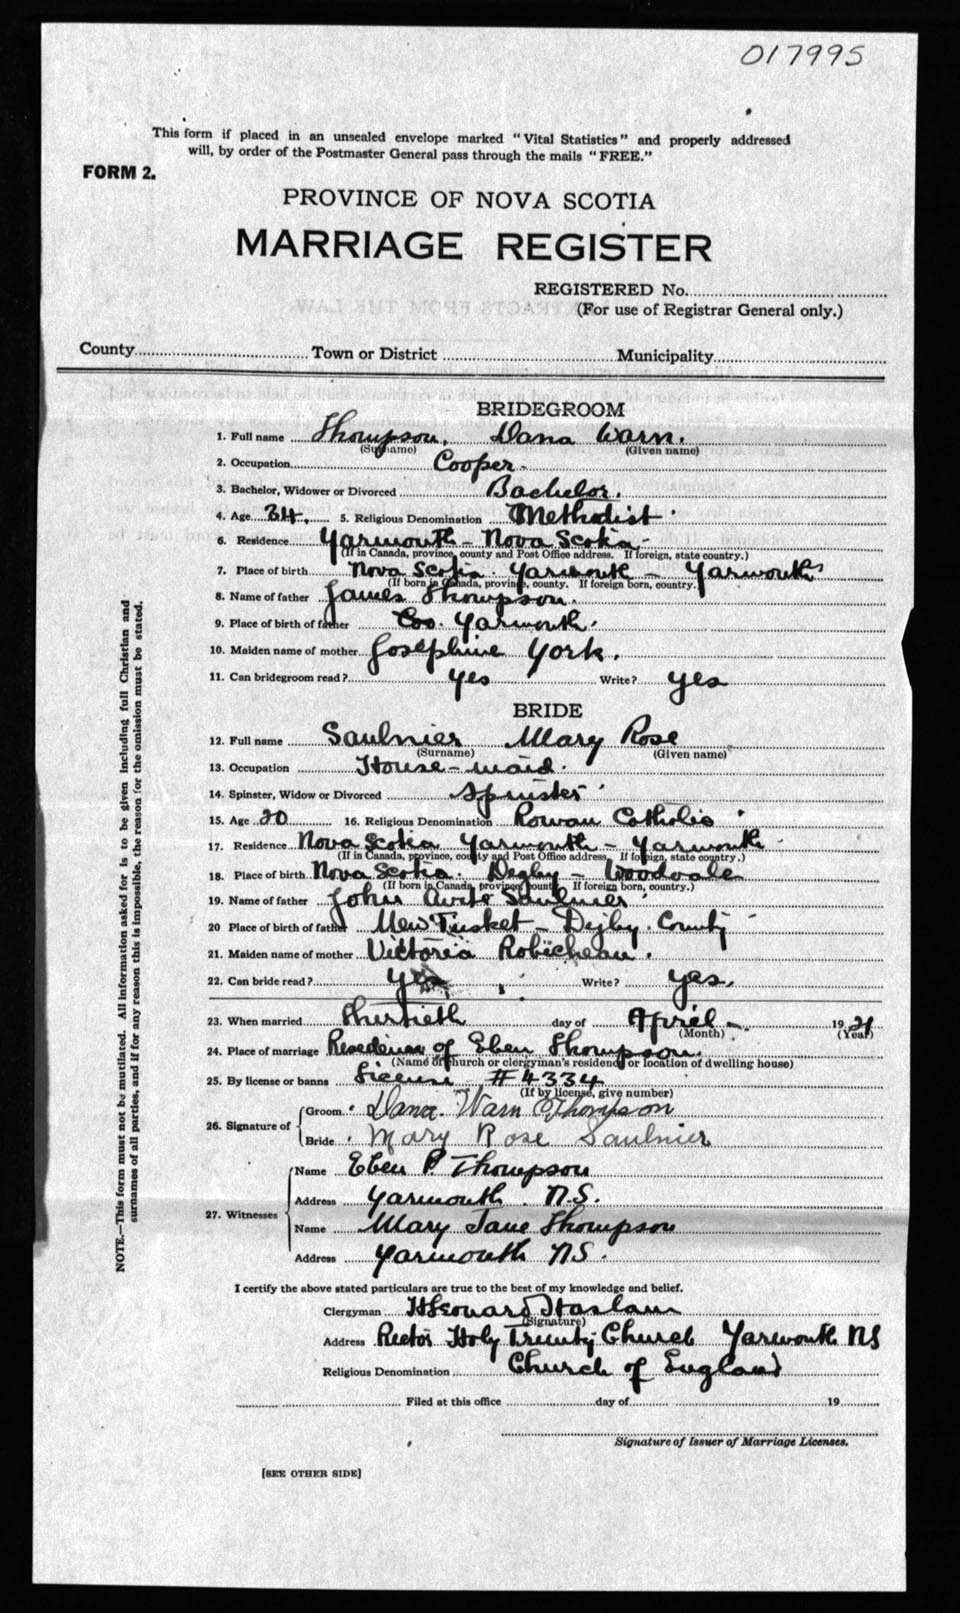 017995
This form if placed in an unsealed envelope marked "Vital Statistics" and properly addressed
will, by order of the Postmaster General pass through the mails "FREE."
FORM 2.
PROVINCE OF NOVA SCOTIA
MARRIAGE REGISTER
REGISTERED No.
(For use of Registrar General only.)
County Town or District Municipality
BRIDEGROOM
1. Full name Thompson, Dana Warn.
(Surname) (Given name)
2. Occupation Cooper.
3. Bachelor, Widower or Divorced Bachelor.
4. Age 24. 5. Religious Denomination Methodist
6. Residence Yarmouth - Nova Scotia -
(If in Canada, province, county and Post Office address. If foreign, state country.)
7. Place of birth Nova Scotia. Yarmouth - Yarmouth
(If born in Canada, province, county. If foreign born, country.)
8. Name of father James Thompson.
9. Place of birth of father Co. Yarmouth.
10. Maiden name of mother Josephine York.
11. Can bridegroom read? yes Write? yes
BRIDE
12. Full name Saulnier Mary Rose
(Surname) (Given name)
13. Occupation House-maid.
14. Spinster, Widow or Divorced Spinster
15. Age 20 16. Religious Denomination Roman Catholic
17. Residence Nova Scotia Yarmouth - Yarmouth
(If in Canada, province, county and Post Office address. If foreign, state country.)
18. Place of birth Nova Scotia. Digby - Woodvale
(If born in Canada, province, county. If foreign born, country.)
19. Name of father John Saulnier
20 Place of birth of father New Tusket - Digby. County
21. Maiden name of mother Victoria Robicheau.
22. Can bride read? yes Write? yes.
23. When married Thirtieth day of April 1921
(Month) (Year)
24. Place of marriage Residence of Eben Thompson.
(Name of church or clergyman's residence or location of dwelling house)
25. By license or banns License - #4334
(If by license, give number)
26. Signature of
Groom Dana Warn Thompson
Bride Mary Rose Saulnier
27. Witnesses
Name Eben P. Thompson
Address Yarmouth. N.S.
Name Mary Jane Thompson
Address Yarmouth NS.
I certify the above stated particulars are true to the best of my knowledge and belief.
Clergyman Leonard Haslam
(Signature)
Address Rector Holy Trinity Church Yarmouth NS
Religious Denomination Church of England
Filed at this office day of 19
Signature of Issuer of Marriage Licenses.
[SEE OTHER SIDE]
NOTE.—This form must not be mutilated. All information asked for is to be given including full Christian and
surnames of all parties, and if for any reason this is impossible, the reason for the omission must be stated.